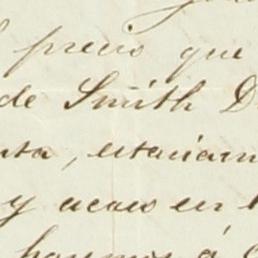 precio que
de Smith D
nta, estariam
y acaso en
haremos á